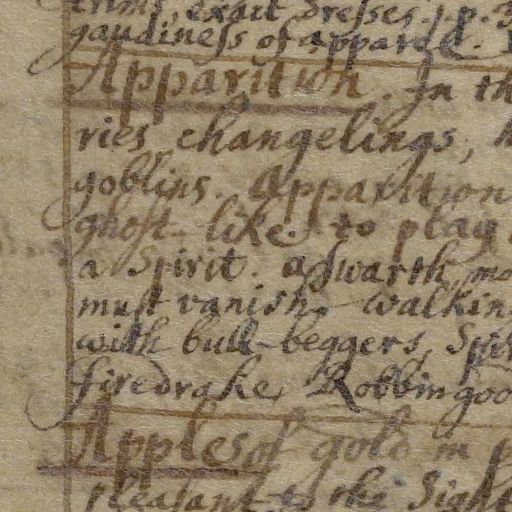 trims, exact dresses. j. p.
gaudiness of apparel.
Apparition. In th
ries, changelings, h
goblins. Apparition
ghost-like. to play
a Spirit. a swarth, mo
must vanish. walkin
with bull-beggers, Spir
firedrake, Robbin goo
Apples of gold in p
pleasant to the Sight